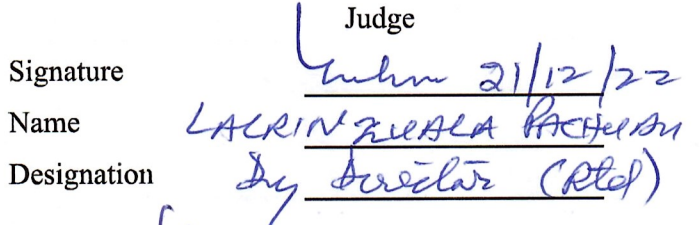 Judge
Signature 21/12/22
Name LALRINZUALA PACHUAU
Designation Dy Director (Rtd)